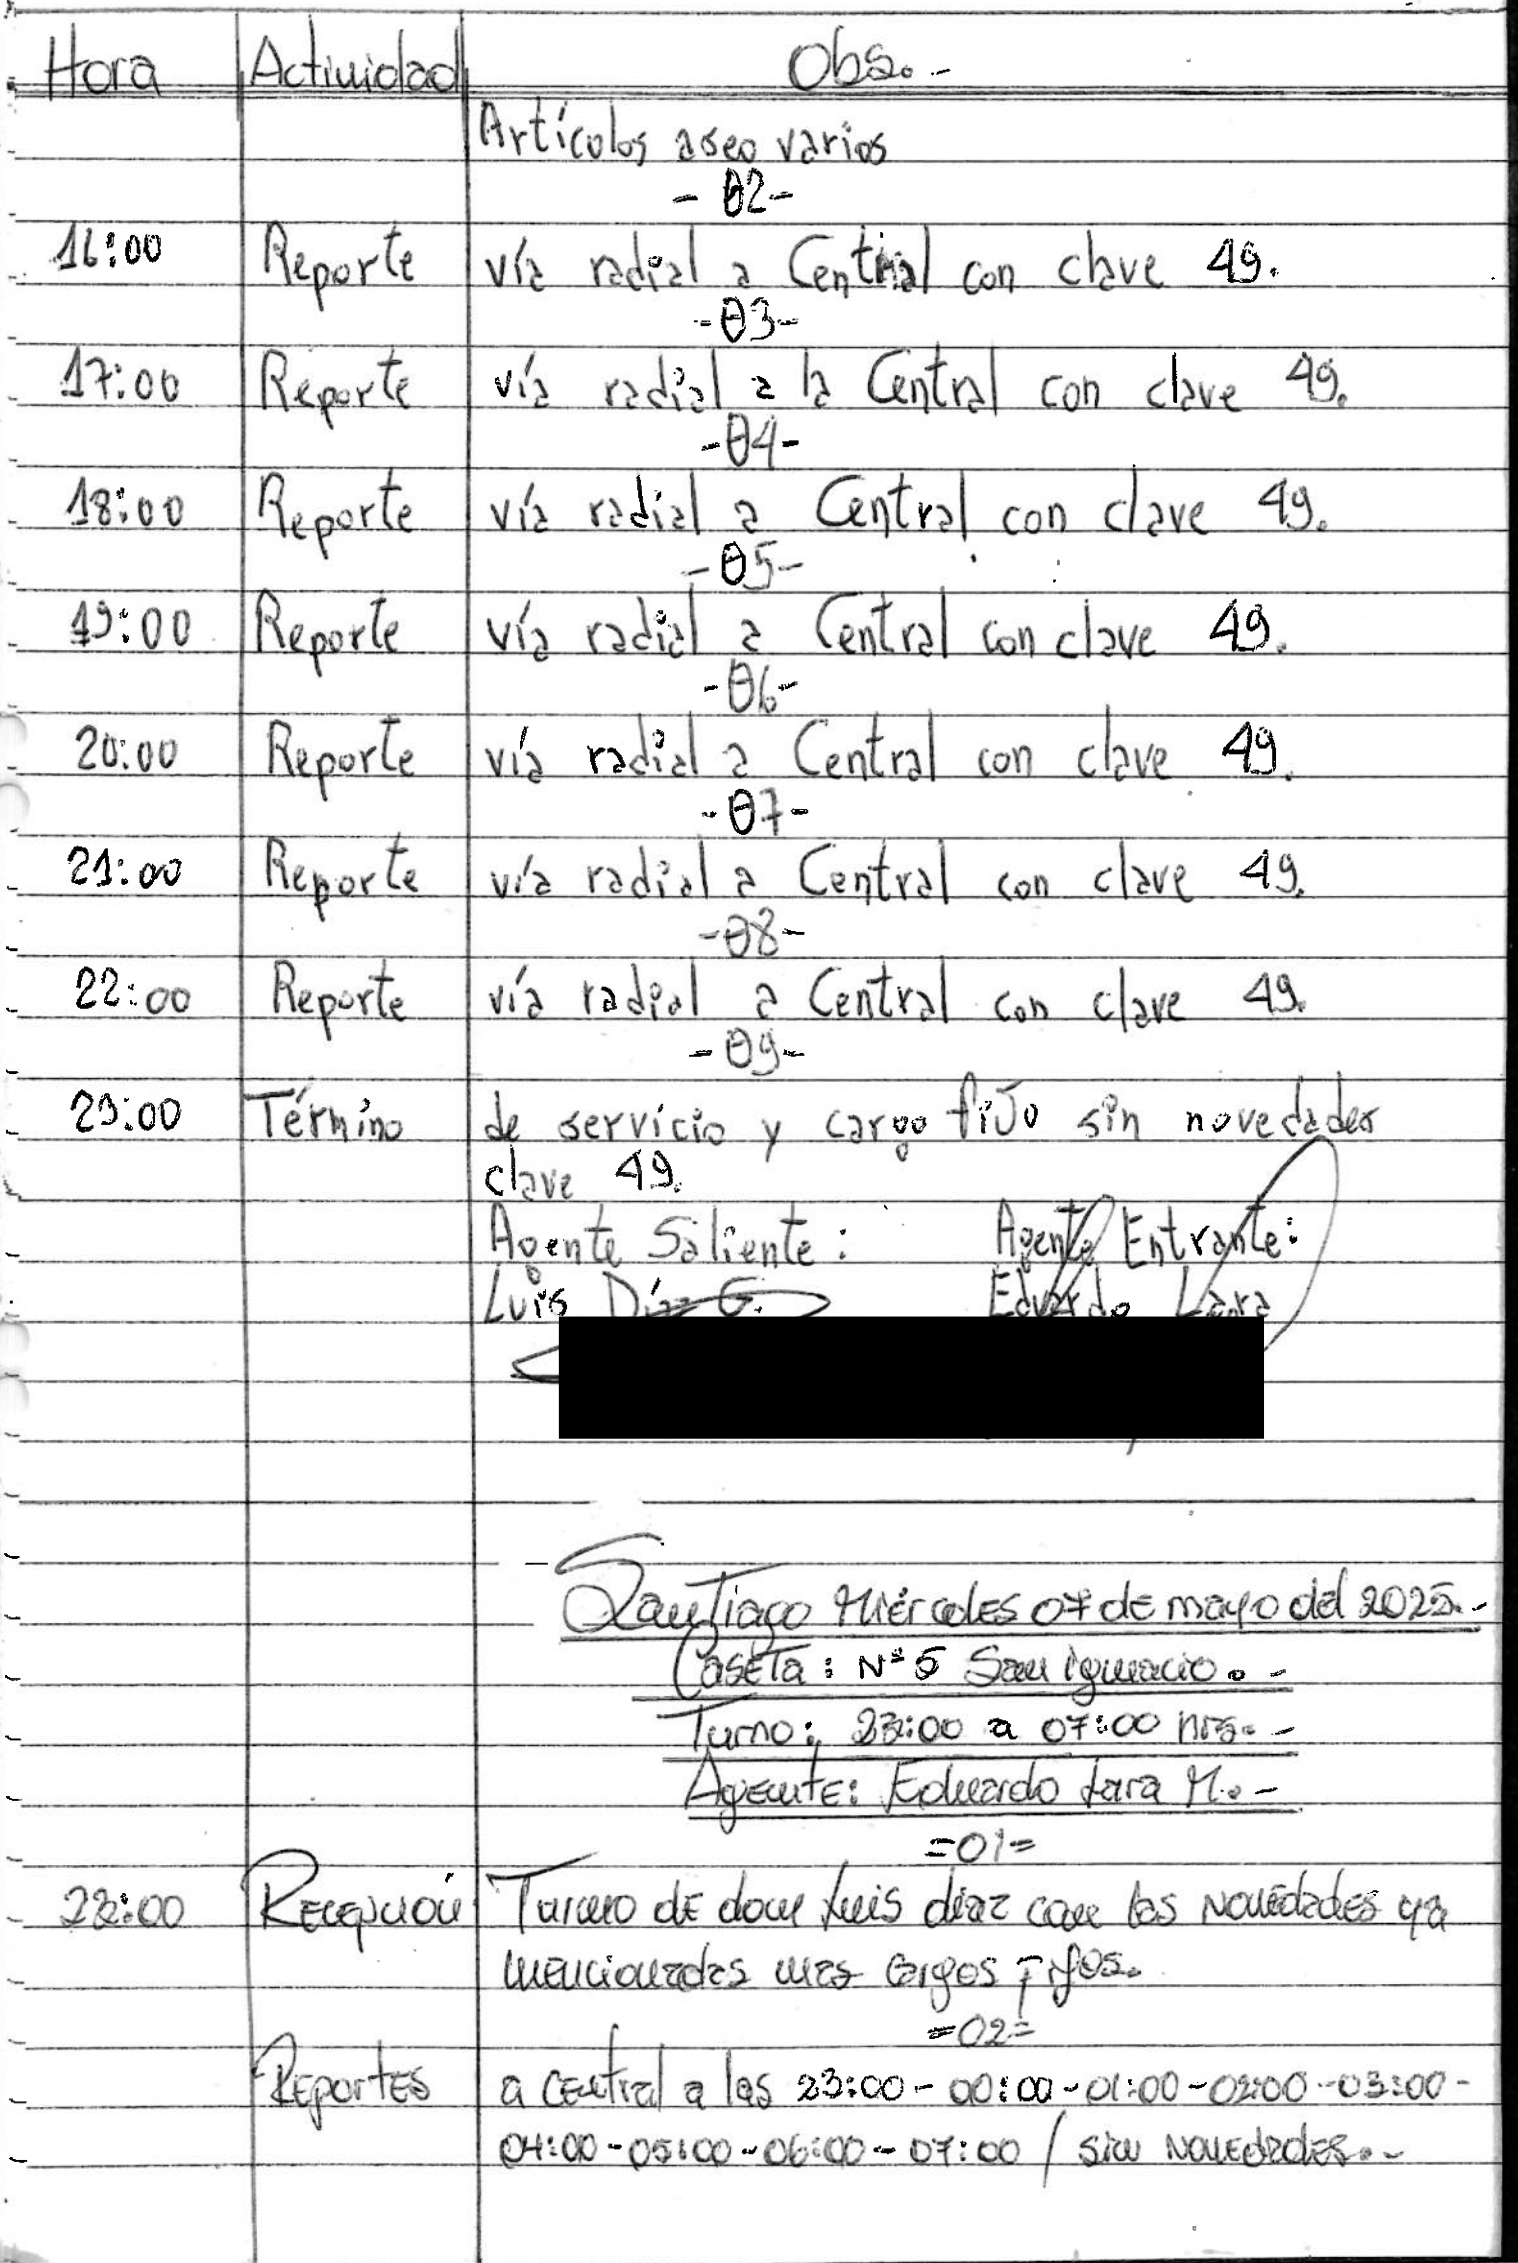 Hora Actividad Obs.-
Artículos aseo varios
- 02 -
16:00 Reporte vía radial a Central con clave 49.
- 03 -
17:00 Reporte vía radial a la Central con clave 49.
- 04 -
18:00 Reporte vía radial a Central con clave 49.
- 05 -
19:00 Reporte vía radial a Central con clave 49.
- 06 -
20:00 Reporte vía radial a Central con clave 49.
- 07 -
21:00 Reporte vía radial a Central con clave 49.
- 08 -
22:00 Reporte vía radial a Central con clave 49.
- 09 -
23:00 Término de servicio y cargo fijo sin novedades
clave 49.
Agente Saliente: Agente Entrante:
Luis Díaz G. Eduardo Lara
Santiago Miércoles 07 de mayo del 2025.-
Caseta: N° 5 San Ignacio.-
Turno: 23:00 a 07:00 hrs.-
Agente: Eduardo Lara M.-
=01=
23:00 Recepción Turno de don Luis diaz con las Novedades ya
mencionadas mas cargos fijos.
=02=
Reportes a central a las 23:00-00:00-01:00-02:00-03:00-
04:00-05:00-06:00-07:00 / sin Novedades.-